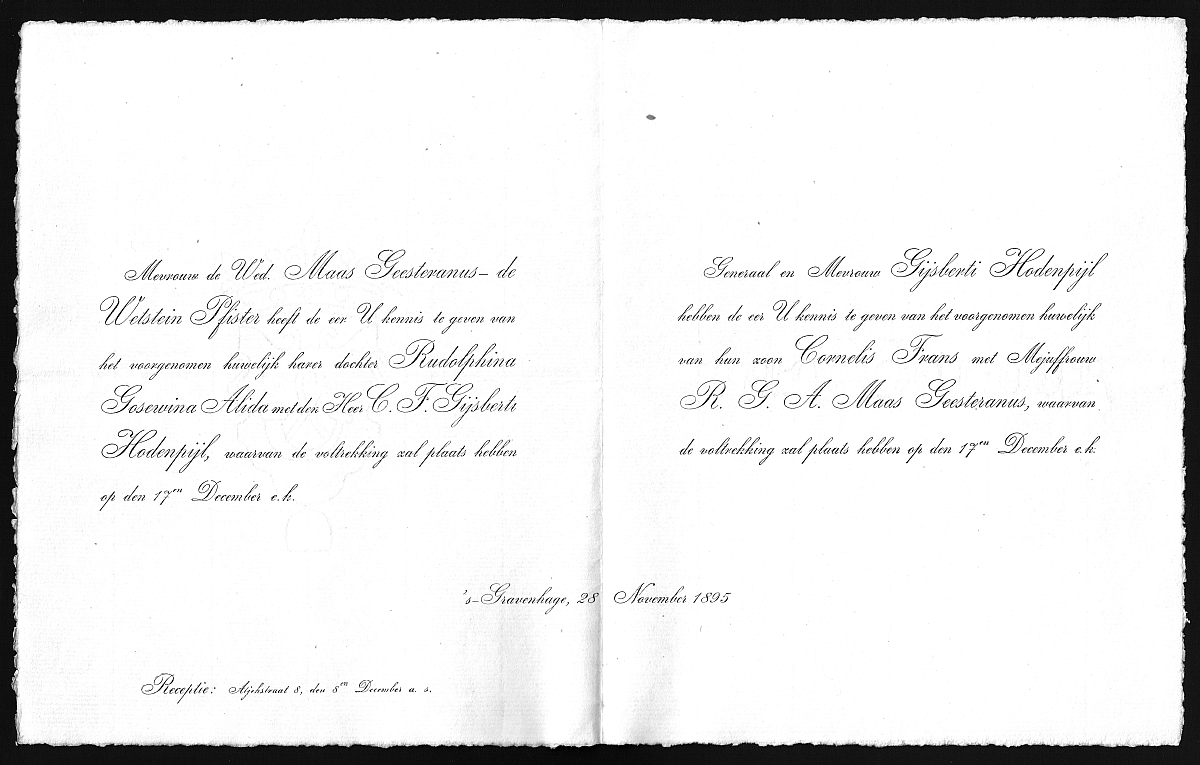 Mevrouw de Wed. Maas Geesteranus – de
Wetstein Pfister heeft de eer U kennis te geven van
het voorgenomen huwelijk harer dochter Rudolphina
Gosewina Alida met den Heer C. F. Gijsberti
Hodenpijl, waarvan de voltrekking zal plaats hebben
op den 17en December e.k.
Generaal en Mevrouw Gijsberti Hodenpijl
hebben de eer U kennis te geven van het voorgenomen huwelijk
van hun zoon Cornelis Frans met Mejuffrouw
R. G. A. Maas Geesteranus, waarvan
de voltrekking zal plaats hebben op den 17en December e.k.
's-Gravenhage, 28 November 1895
Receptie: 8, den 8en December a. s.